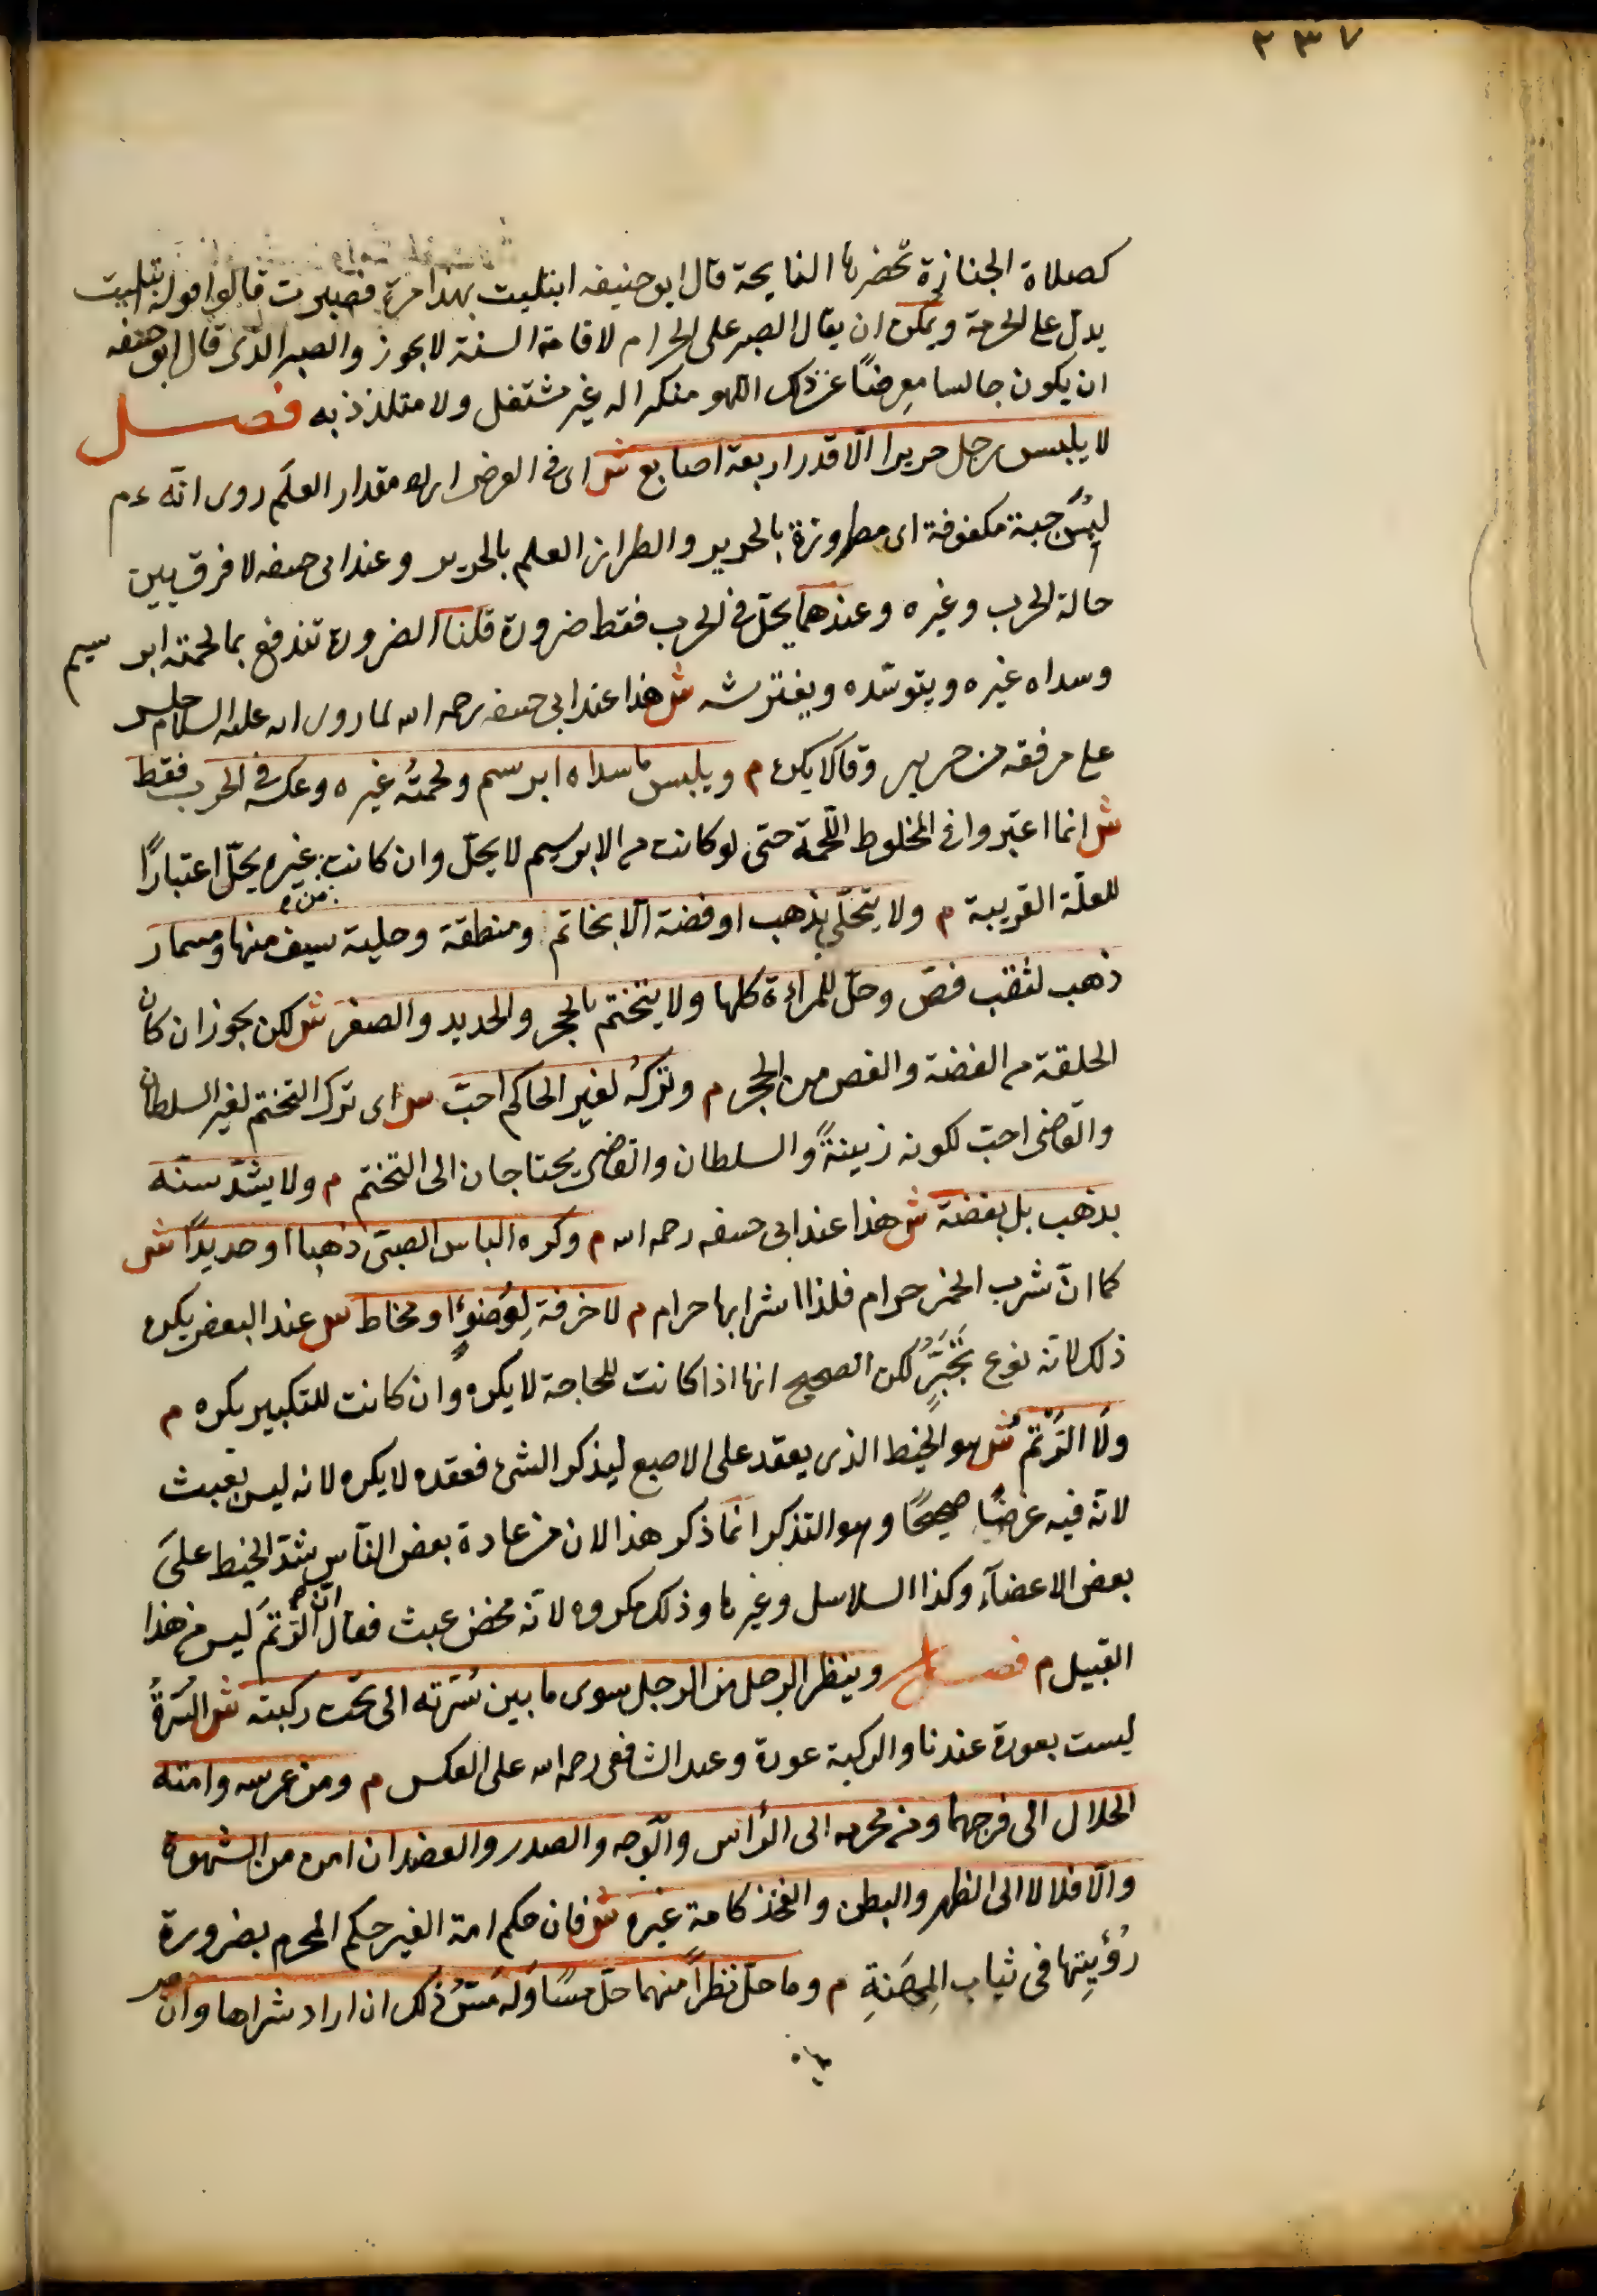 ٢٣٧
كصلاة الجنازة تحضرها النايحة قال ابو حنيفه ابتليت بهذا مرة فصبرت قالوا قوله ابتليت
يدل على الحرمة ويمكن ان يقال الصبر على الحرام لاقامة السنة لا يجوز والصبر الذى قال ابو حنيفه
ان يكون جالسا معرضًا عن ذلك اللهو منكرا له غير مشتغل ولا متلذذ به فصل
لا يلبس رجل حريرا الّا قدر اربعة اصابع ش اى فى العرض اراد مقدار العلَم روى انّه ءم
لبسَ جبة مكفوفة اى مطروزة بالحرير والطراز العلم بالحرير وعند ابى حنيفه لا فرق بين
حالة الحرب وغيره وعندهما يحلّ فى الحرب فقط ضرورة قلنا الضرورة تندفع بما لحمته ابر سيم
وسداه غيره ويتوسّده ويفترشه ش هذا عند ابى حنيفه رحمه الله لما روى انه عليه السلام جلس
على مرفقه من حرير وقالا يكره م ويلبس ما سداه ابرسم ولحمتُه غيره وعكسه فى الحرب فقط
ش انما اعتبروا فى المخلوط اللّحمة حتى لو كانت من الابرسيم لا يحلّ وان كانت غيره يحلّ اعتبارًا
من ه
للعلّة القريبة م ولا يتحلّى بذهب او فضة الّا بخاتم ومنطقة وحلية سيف منها ومسمار
ذهب لثقب فصّ وحلّ للمراءة كلها ولا يتختم بالحجر والحديد والصفر ش لكن يجوز ان كان
الحلقة من الفضة والفص من الحجر م وتركُه لغير الحاكم احبّ ش اى ترك التختم لغير السلطان
والقاضى احبّ لكونه زينةً والسلطان والقاضى يحتاجان الى التختم م ولا يشدّ سنّه
بذهب بل بفضة ش هذا عند ابى حنيفه رحمه الله م وكره الباس الصبىّ ذهبا او حديدًا ش
كما انّ شرب الخمر حرام فلذا اشرابها حرام م لا خرقة لِوُضوءٍ او مخاط ش عند البعض يكره
ذلك لانّه نوع تَجَبّرٍ لكن الصحيح انها اذا كانت للحاجة لا يكره وان كانت للتكبير يكره م
ولَا الرَّتْمُ ش هو الخيط الذى يعقد على الاصبع ليذكر الشئ فعقده لا يكره لانه ليس بعبث
لانّه فيه غرضًا صحيحًا وهو التذكر انّما ذكر هذا لان من عادة بعض النّاس شدّ الخيط علىَ
بعض الاعضآء وكذا السلاسل وغيرها وذلك مكروه لانّه محض عبث فقال انّ الرّتمَ ليس من هذا
القبيل م فصل وينظر الرجل من الرجل سوى ما بين سُرّته الى تحت ركبته ش السُرّةُ
ليست بعورة عندنا والركبة عورة وعند الشافعى رحمه الله على العكس م ومن عرسه وامته
الحلال الى فرجهما ومن محرمه الى الرأس والوجه والصدر والعضد ان امن من الشهوة
والّا فلا لا الى الظهر والبطن والفخذ كامة غيره ش فان حكم امة الغير حكم المحرم بضرورة
رُؤيتِها فى ثياب المِهَنةِ م وما حلّ نظراً منهما حلّ مسًا وَله مَسُّ ذلك ان اراد شراها وان